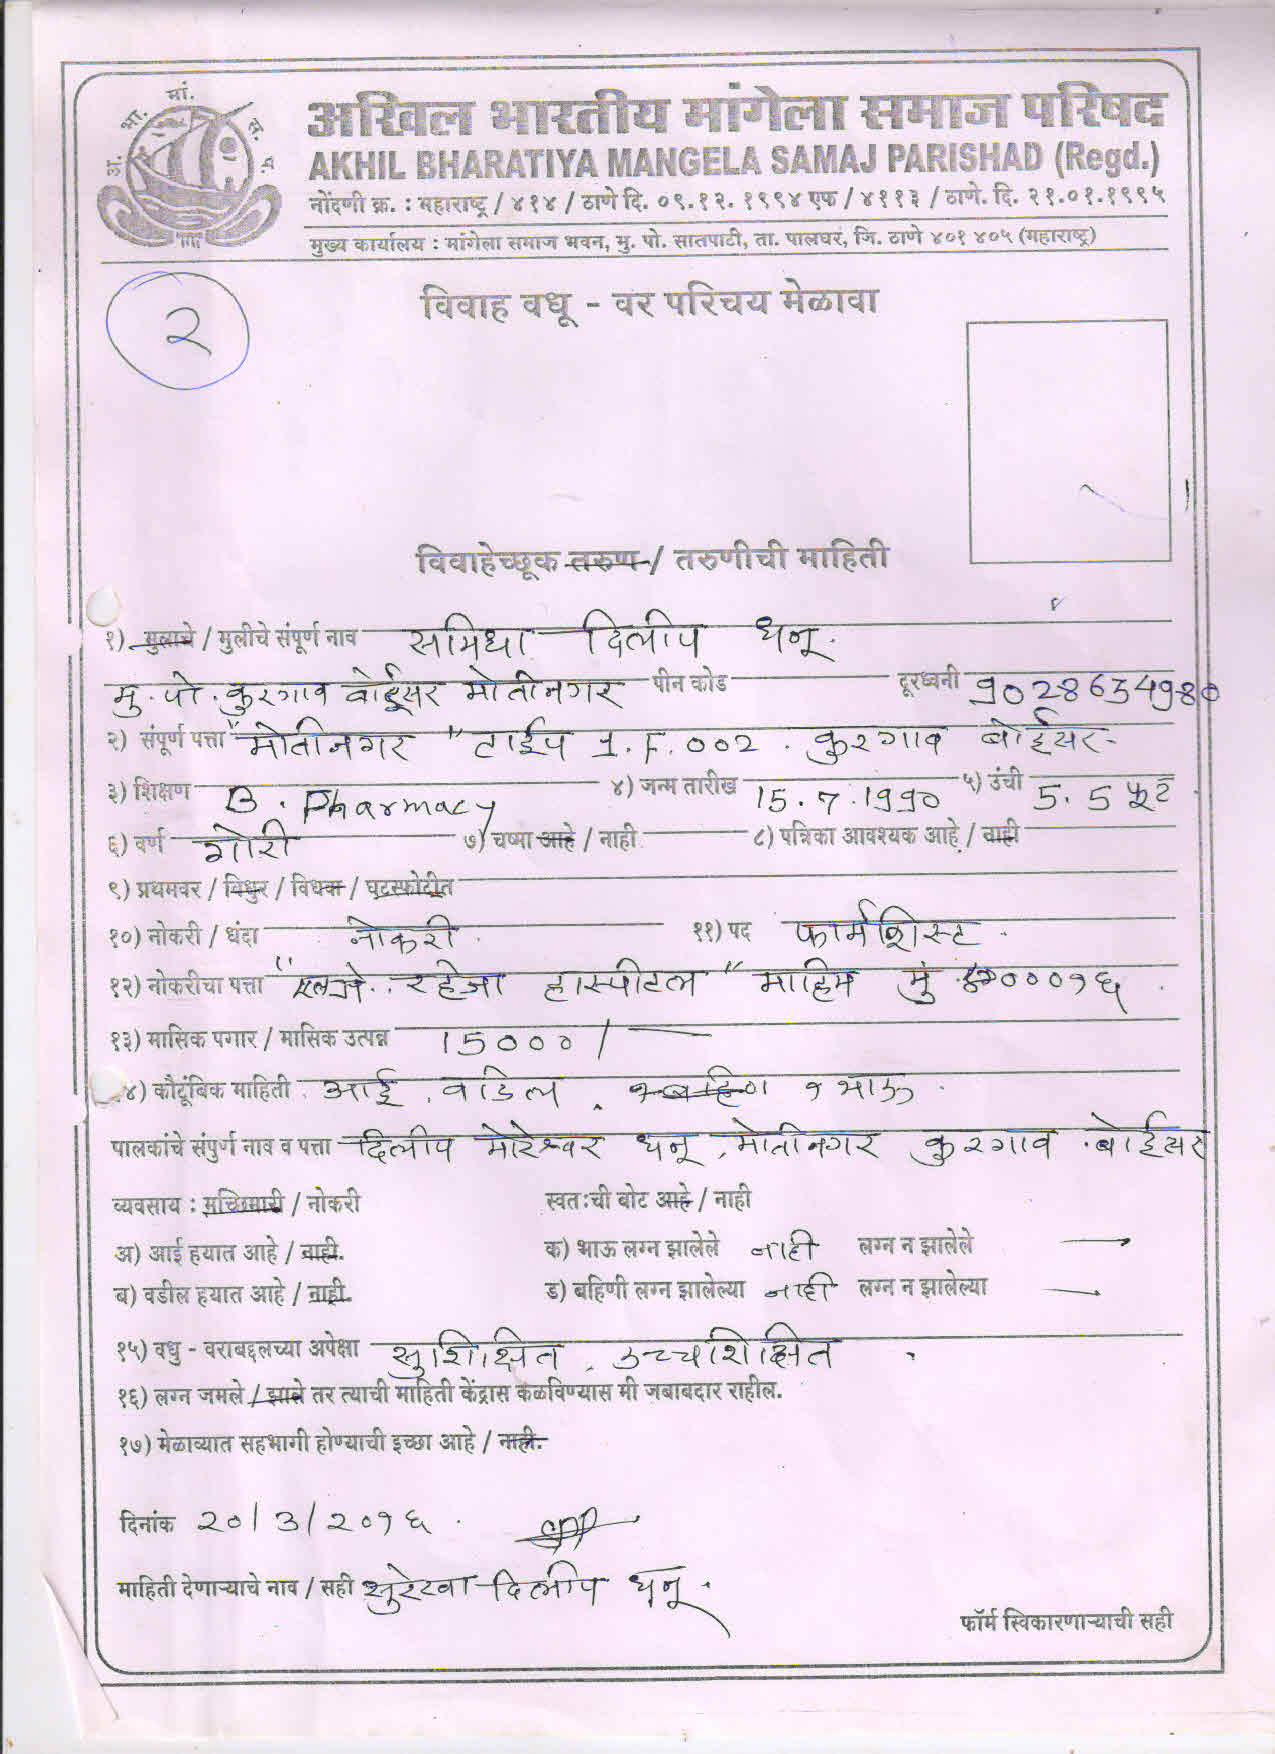 अ. भा. मां. स. प.
अखिल भारतीय मांगेला समाज परिषद
AKHIL BHARATIYA MANGELA SAMAJ PARISHAD (Regd.)
नोंदणी क्र. : महाराष्ट्र / ४१४ / ठाणे दि. ०९.१२. १९९४ एफ / ४११३ / ठाणे. दि. २१.०१.१९९५
मुख्य कार्यालय : मांगेला समाज भवन, मु. पो. सातपाटी, ता. पालघर, जि. ठाणे ४०१ ४०५ (महाराष्ट्र)
२
विवाह वधू - वर परिचय मेळावा
विवाहेच्छूक तरुण / तरुणीची माहिती
१) मुलाचे / मुलीचे संपूर्ण नाव समिधा दिलीप धनू.
मु. पो. कुरगाव बोईसर मोतीनगर पीन कोड दूरध्वनी ९028634980
२) संपूर्ण पत्ता "मोतीनगर" टाईप 1.F.002. कुरगाव बोईसर-
३) शिक्षण B. Pharmacy ४) जन्म तारीख 15.7.1990 ५) उंची 5.5 फूट
६) वर्ण गोरी ७) चष्मा आहे / नाही ८) पत्रिका आवश्यक आहे / नाही
९) प्रथमवर / विधुर / विधवा / घटस्फोटीत
१०) नोकरी / धंदा नोकरी. ११) पद फार्मशिस्ट.
१२) नोकरीचा पत्ता "एल जे. रहेजा हास्पीटल" माहिम मुं ४०००१६.
१३) मासिक पगार / मासिक उत्पन्न 15000/
४) कौटूंबिक माहिती. आई, वडिल, १ बहिण १ भाऊ.
पालकांचे संपुर्ण नाव व पत्ता दिलीप मोरेश्वर धनू, मोतीनगर कुरगाव. बोईसर
व्यवसाय : मच्छिमारी / नोकरी स्वतःची बोट आहे / नाही
अ) आई हयात आहे / नाही. क) भाऊ लग्न झालेले नाही लग्न न झालेले
ब) वडील हयात आहे / नाही. ड) बहिणी लग्न झालेल्या नाही लग्न न झालेल्या
१५) वधु - वराबद्दलच्या अपेक्षा सुशिक्षित, उच्चशिक्षित.
१६) लग्न जमले / झाले तर त्याची माहिती केंद्रास कळविण्यास मी जबाबदार राहील.
१७) मेळाव्यात सहभागी होण्याची इच्छा आहे / नाही.
दिनांक २०/3/२०१६.
माहिती देणाऱ्याचे नाव / सही सुरेखा दिलीप धनू.
फॉर्म स्विकारणाऱ्याची सही